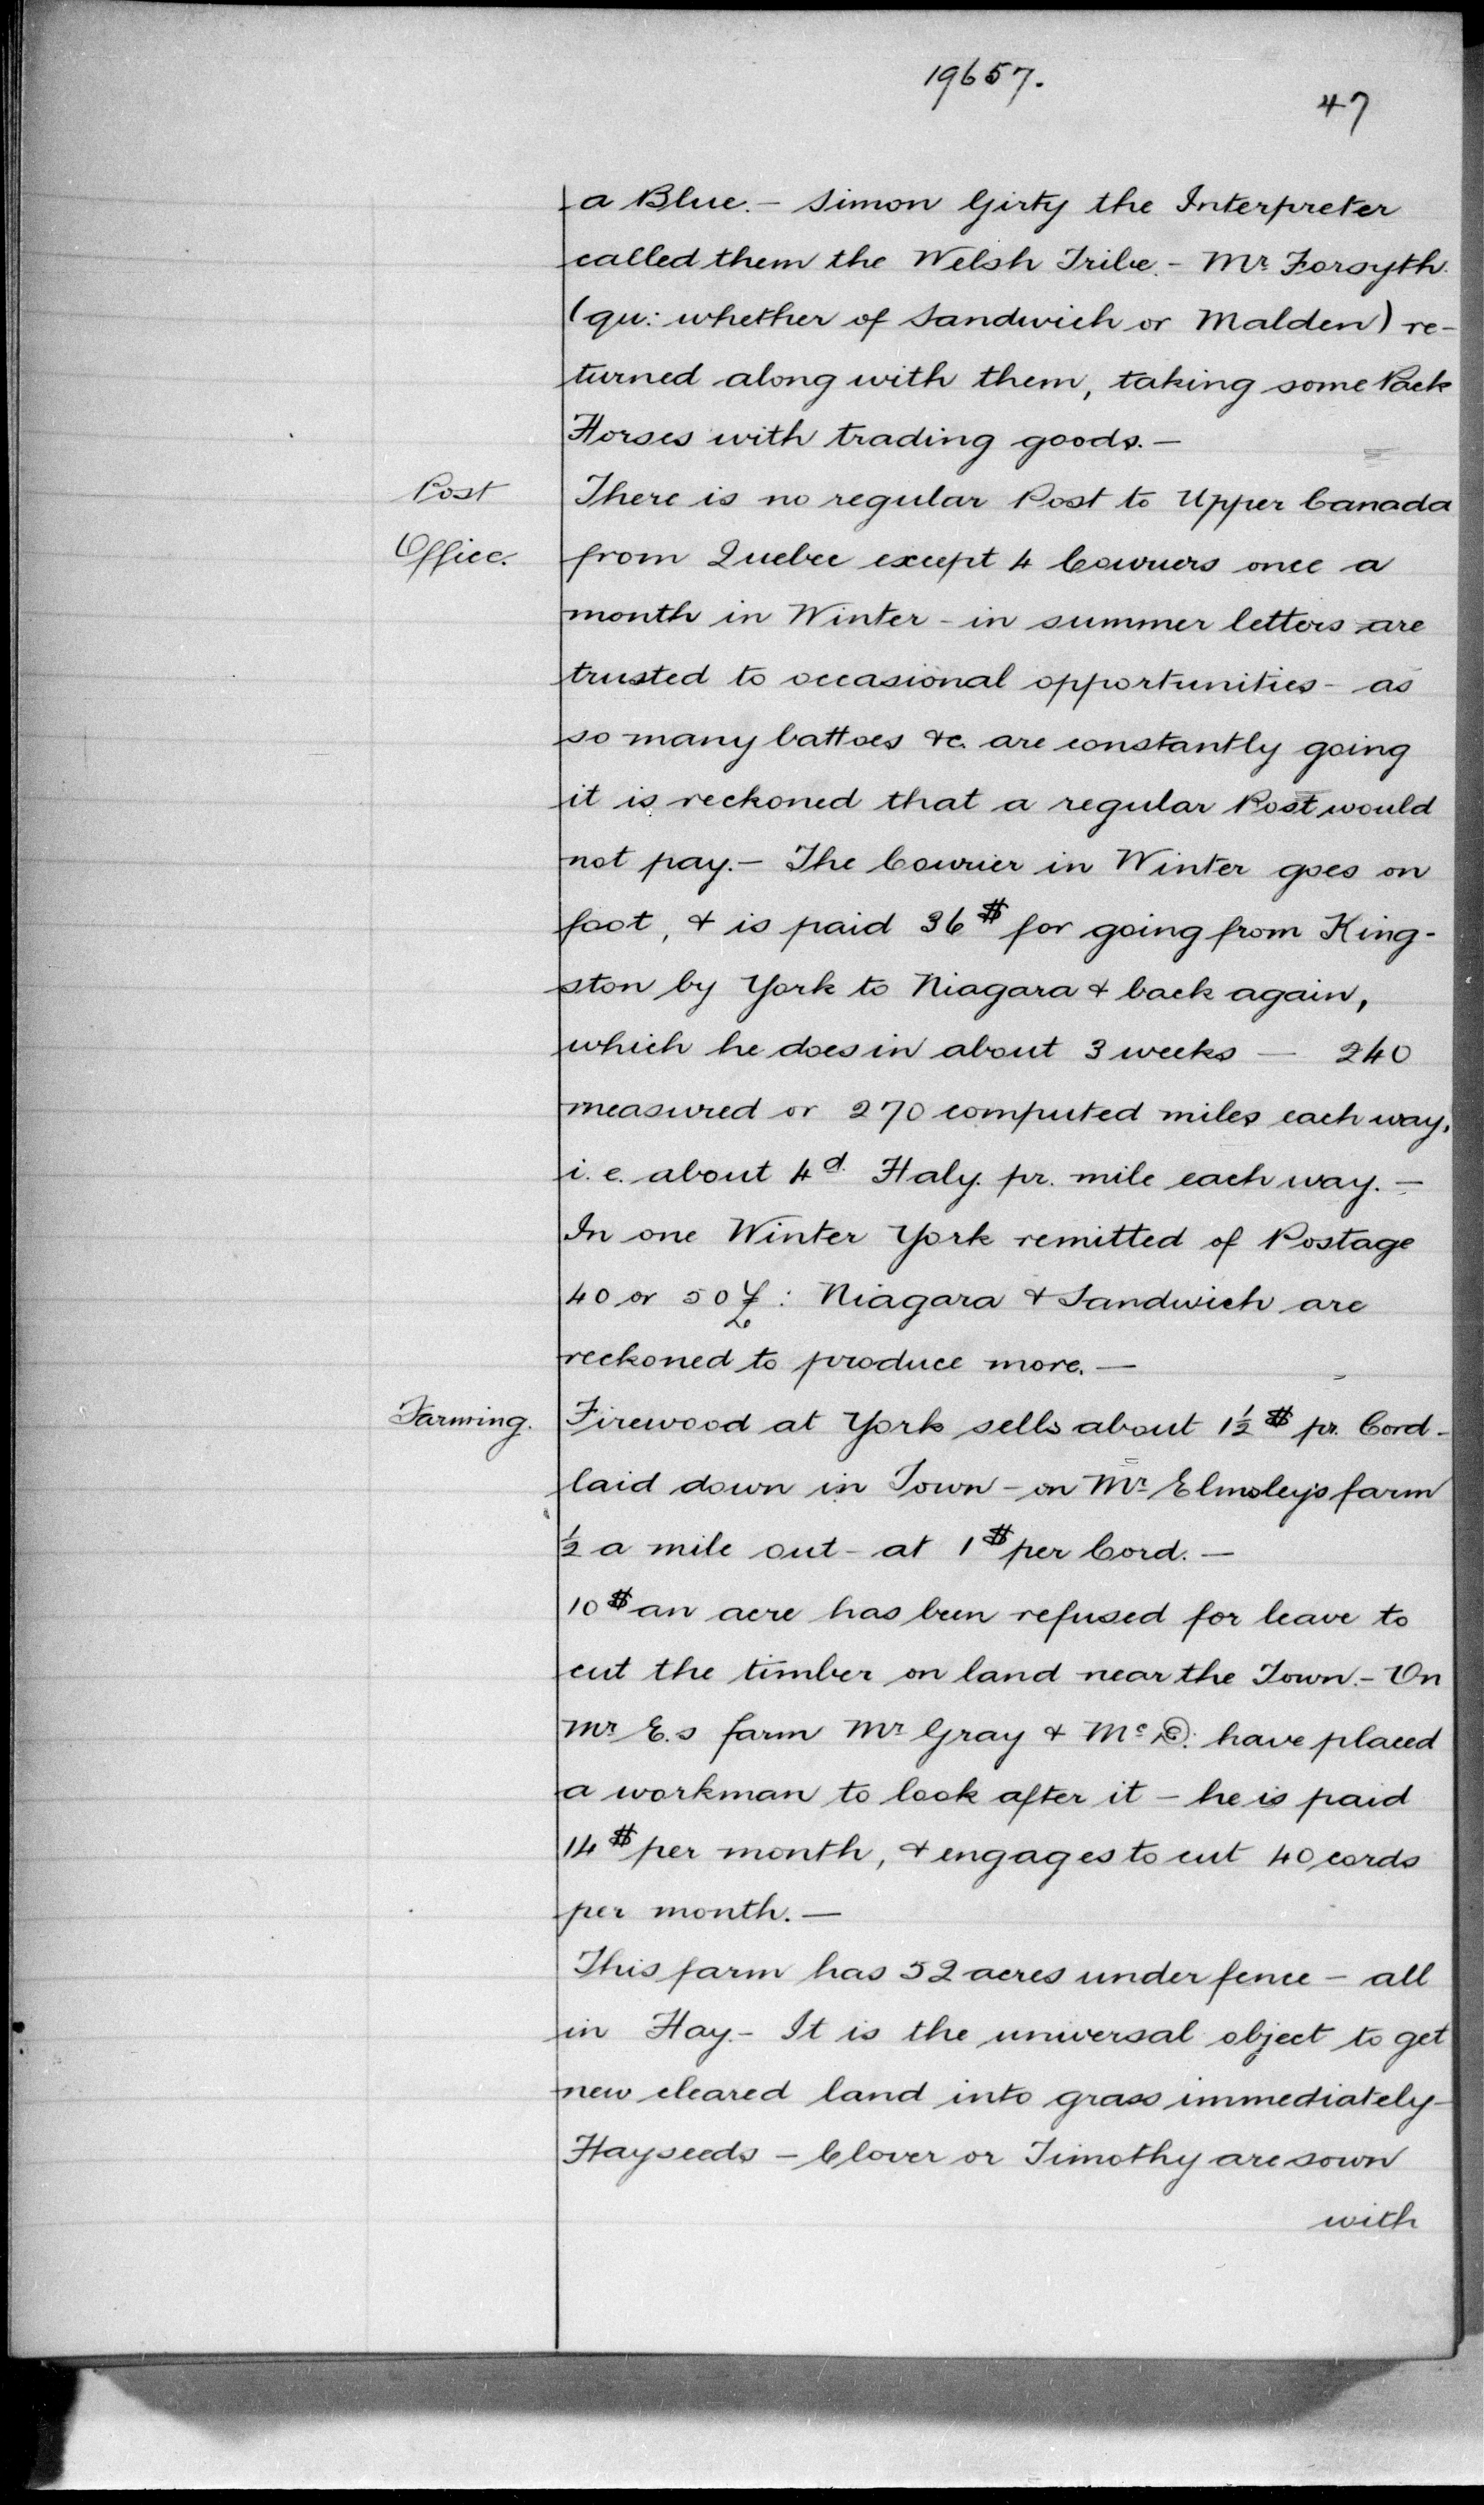 19657.
47
a Blue. - Simon Girty the Interpreter
called them the Welsh Tribe. - Mr. Forsyth.
(qu: whether of Sandwich or Malden) re-
turned along with them, taking some Pack
Horses with trading goods. -
Post There is no regular Post to Upper Canada
Office. from Quebec except 4 Couriers once a
month in Winter - in summer letters are
trusted to occasional opportunities - as
so many battoes &c. are constantly going
it is reckoned that a regular Post would
not pay. - The Courier in Winter goes on
foot, & is paid 36$ for going from King-
ston by York to Niagara & back again,
which he does in about 3 weeks - 240
measured or 270 computed miles each way,
i.e. about 4d. Haly. pr. mile each way. -
In one Winter York remitted of Postage
40 or 50 £: Niagara & Sandwich are
reckoned to produce more. -
Farming. Firewood at York sells about 1½ $ pr. Cord -
laid down in Town - on Mr. Elmsley's farm
½ a mile out - at 1$ per Cord. -
10$ an acre has been refused for leave to
cut the timber on land near the Town. - On
Mr. E.s farm Mr. Gray & Mc. have placed
a workman to look after it - he is paid
14$ per month, & engages to cut 40 cords
per month. -
This farm has 52 acres under fence - all
in Hay. - It is the universal object to get
new cleared land into grass immediately -
Hayseeds - Clover or Timothy are sown
with